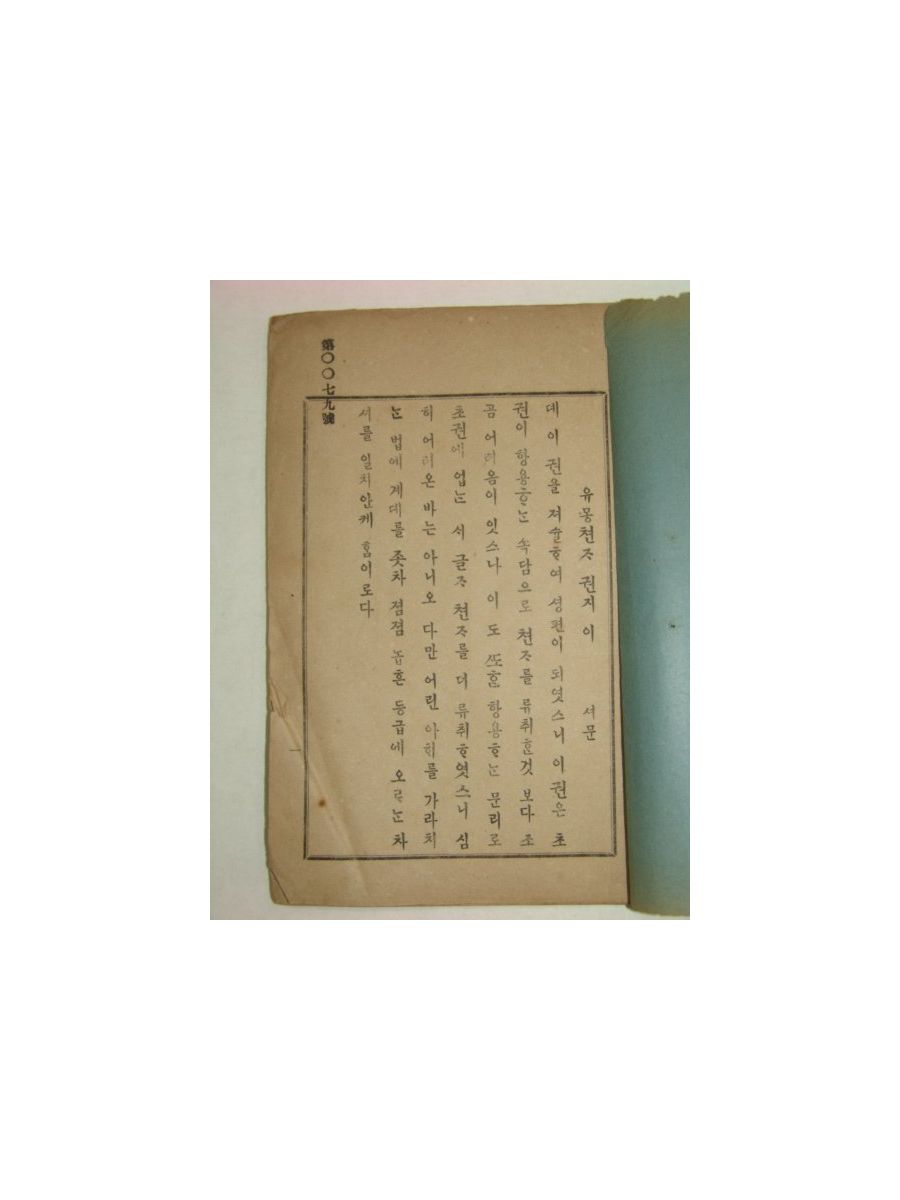 유몽쳔ᄌᆞ 권지이 셔문
뎨이권을 져슐ᄒᆞ여 셩편이 되엿스니 이권은 초
권이 항용ᄒᆞᄂᆞᆫ 쇽담으로 쳔ᄌᆞ를 류취ᄒᆞᆫ것 보다 조
곰 어려옴이 잇스나 이 도 ᄯᅩᄒᆞᆫ 항용ᄒᆞᄂᆞᆫ 문리로
초권에 업ᄂᆞᆫ 서 글ᄌᆞ 쳔ᄌᆞ를 더 류취ᄒᆞ엿스니 심
히 어려온 바는 아니오 다만 어린 아ᄒᆡ를 가라치
ᄂᆞᆫ 법에 계뎨를 좃차 졈졈 놉흔 등급에 오르ᄂᆞᆫ 차
셔를 일치안케 ᄒᆞᆷ이로다
第〇〇七九號